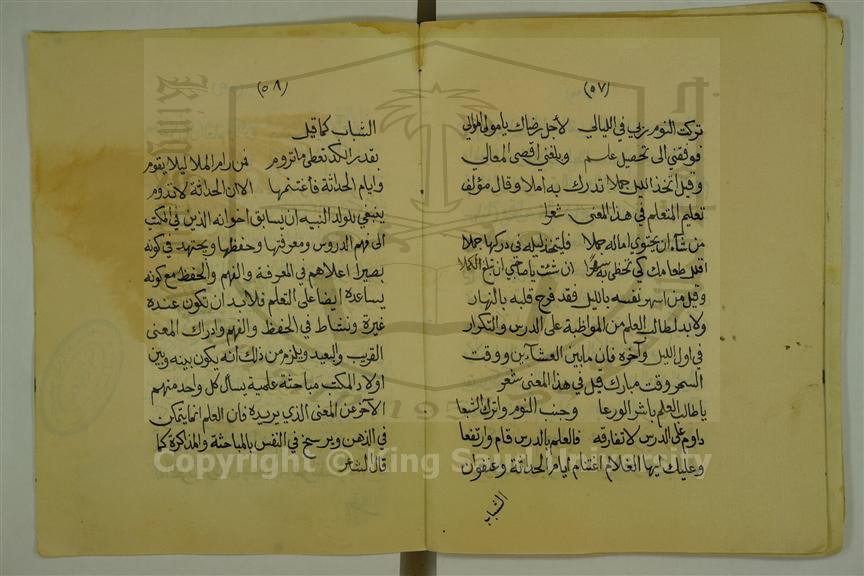 (٥٧)
تركت النوم ربي في الليالي لاجل رضاك يا مولى الموالي
فوفقني الى تحصيل علم وبلغني اقصى المعالي
وقيل اتخذ الليل جملا تدرك به املا وقال مؤلف
تعليم المتعلم في هذا المعنى شعرا
من شاء ان يحتوي اماله جملا فليتخذ ليله في دركها جملا
اقلل طعامك كي تحظى به سهرا ان شئت يا صاحبي ان تبلغ الكملا
وقيل من اسهر نفسه بالليل فقد فرح قلبه بالنهار
ولابد لطالب العلم من المواظبة على الدرس والتكرار
في اول الليل وآخره فان مابين العشآءين ووقت
السحر وقت مبارك قيل في هذا المعنى شعر
يا طالب العلم باشر الورعا وجنب النوم واترك الشبعا
داوم على الدرس لا تفارقه فالعلم بالدرس قام وارتفعا
وعليك ايها الغلام اغتنام أيام الحداثة وعنفوان
الشباب
(٥٨)
الشباب كما قيل
بقدر الكد تعطى ما تروم فمن رام الملا ليلا يقوم
وايام الحداثة فأغتنمها الا ان الحداثة لا تدوم
ينبغي للولد النبيه ان يسابق اخوانه الذين في المكتب
الى فهم الدروس ومعرفتها وحفظها ويجتهد في كونه
بصيرا اعلاهم في المعرفة والفهم والحفظ مع كونه
يساعده ايضا على التعلم فلابد ان تكون عنده
غيرة ونشاط في الحفظ والفهم وادراك المعنى
القريب والبعيد ويلزم من ذلك انه يكون بينه وبين
اولاد المكتب مباحثة علمية يسأل كل واحد منهم
الآخر عن المعنى الذي يريده فان العلم انما يتمكن
في الذهن ويرسخ في النفس بالمباحثة والمذاكرة كما
قال الشاعر
Copyright © King Saud University